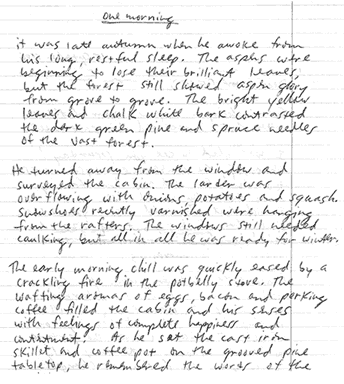 One morning
it was late autumn when he awoke from
his long, restful sleep. The aspens were
beginning to lose their brilliant leaves,
but the forest still showed aspen glory
from grove to grove. The bright yellow
leaves and chalk white bark contrassed
the dark green pine and spruce needles
of the vast forest.
He turned away from the window and
surveyed the cabin. The larder was
overflowing with onions, potatoes and squash.
Snowshoes recently varnished were hanging
from the rafters. The windows still needed
caulking, but all in all he was ready for winter.
The early morning chill was quickly eased by a
crackling fire in the potbelly stove. The
wafting aromas of eggs, bacon and perking
coffee filled the cabin and his senses
with feelings of complete happiness and
contentment. As he sat the cast iron
skillet and coffee pot on the grooved pine
tabletop, he remembered the words of the